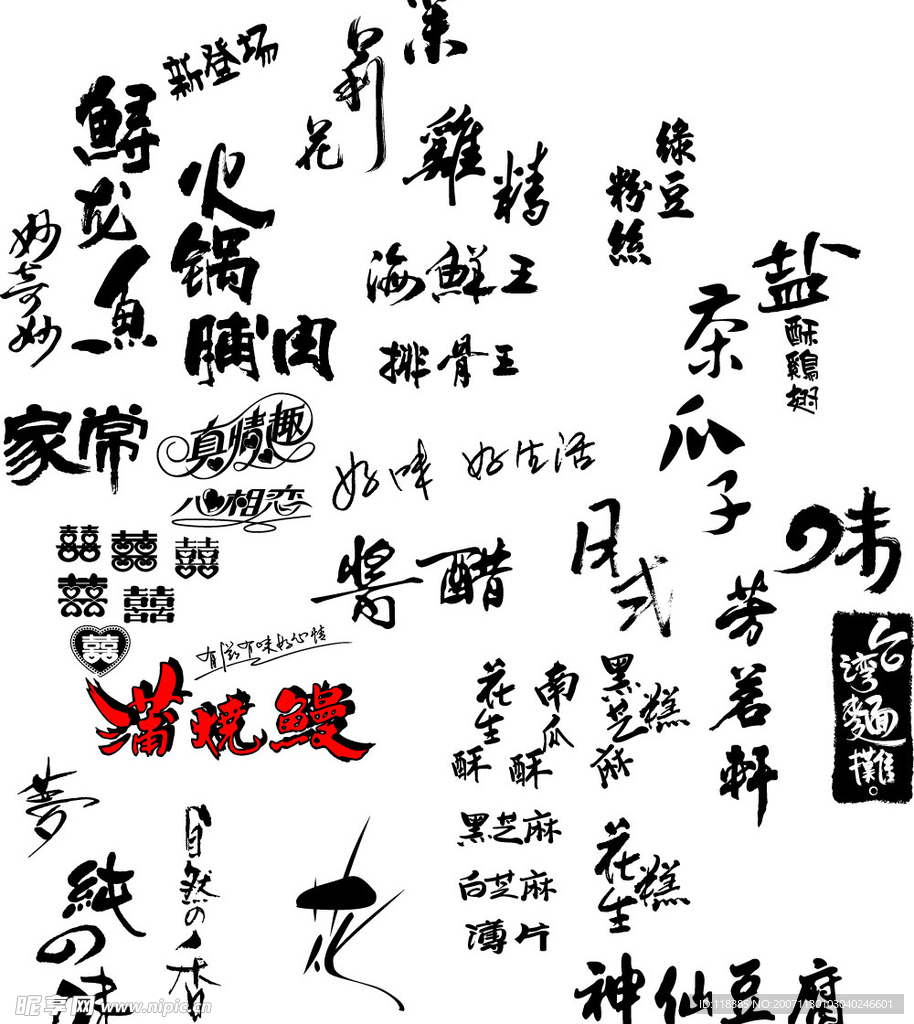 新登场
莉
花
菓
鲟
龙
鱼
火
锅
雞
精
綠豆
粉絲
妙奇妙
海鮮王
脯肉
排骨王
盐
酥雞翅
茶
瓜
子
家常
真情趣
心相恋
好味
好生活
味
囍 囍 囍
囍 囍
囍
醬醋
日式
芳茗軒
台
灣麵攤。
有滋有味好心情
蒲燒鰻
花生
酥
南瓜
酥
黑芝麻
糕
夢
自然の
花
黑芝麻
白芝麻
薄片
花生
糕
純
の
味
神仙豆腐
昵享网 www.nipic.cn
ID:118385 NO:20071130103040246601